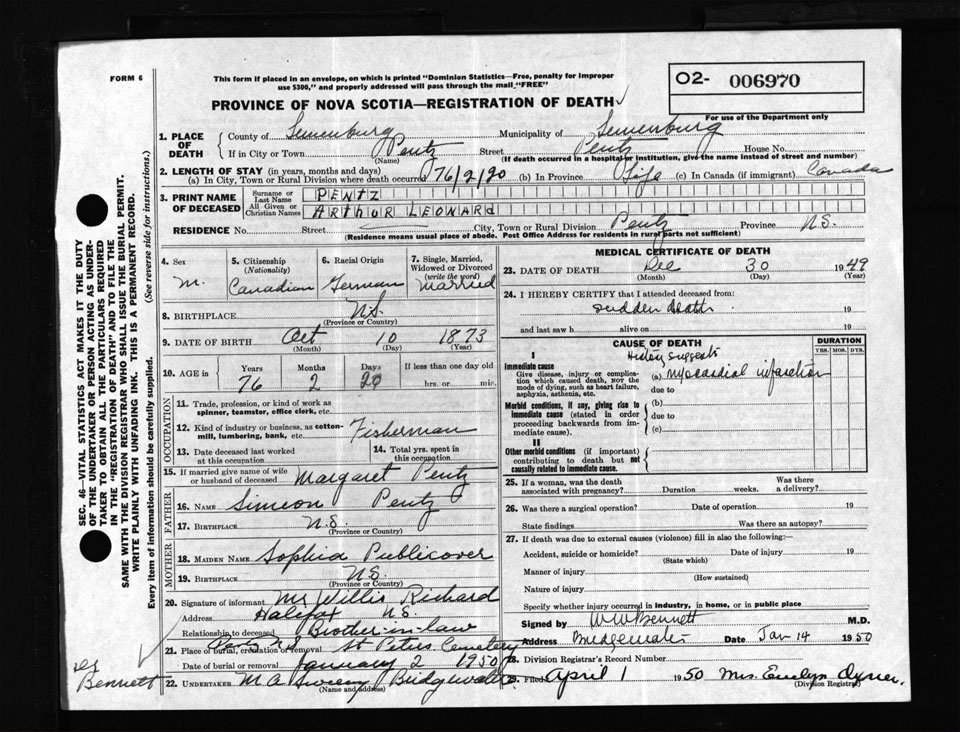 FORM 6
This form if placed in an envelope, on which is printed "Dominion Statistics—Free, penalty for improper
use $300," and properly addressed will pass through the mail "FREE"
O2- 006970
For use of the Department only
PROVINCE OF NOVA SCOTIA—REGISTRATION OF DEATH ✓
1. PLACE OF DEATH
County of Lunenburg Municipality of Lunenburg
If in City or Town Pentz Street Pentz House No.
(Name) (If death occurred in a hospital or institution, give the name instead of street and number)
2. LENGTH OF STAY (in years, months and days)
(a) In City, Town or Rural Division where death occurred 76/2/20 (b) In Province Life (c) In Canada (if immigrant) Canada
3. PRINT NAME OF DECEASED
Surname or Last Name PENTZ
All Given or Christian Names ARTHUR LEONARD
RESIDENCE No. Street City, Town or Rural Division Pentz Province N.S.
(Residence means usual place of abode. Post Office Address for residents in rural parts not sufficient)
4. Sex M.
5. Citizenship (Nationality) Canadian
6. Racial Origin German
7. Single, Married, Widowed or Divorced (write the word) Married
8. BIRTHPLACE N.S.
(Province or Country)
9. DATE OF BIRTH Oct 10 1873
(Month) (Day) (Year)
10. AGE in Years Months Days If less than one day old
76 2 20 hrs. or min.
OCCUPATION
11. Trade, profession or kind of work as spinner, teamster, office clerk, etc.
12. Kind of industry or business, as cotton-mill, lumbering, bank, etc. Fisherman
13. Date deceased last worked at this occupation
14. Total yrs. spent in this occupation
15. If married give name of wife or husband of deceased Margaret Pentz
FATHER
16. NAME Simeon Pentz
17. BIRTHPLACE N.S.
(Province or Country)
MOTHER
18. MAIDEN NAME Sophia Publicover
19. BIRTHPLACE N.S.
(Province or Country)
20. Signature of informant Mr Willis Richard
Address Halifax N.S.
Relationship to deceased Brother-in-law
21. Place of burial, cremation or removal St Peters Cemetery
Date of burial or removal January 2 1950
22. UNDERTAKER M A Sweeny Bridgewater
(Name and address)
MEDICAL CERTIFICATE OF DEATH
23. DATE OF DEATH Dec 30 1949
(Month) (Day) (Year)
24. I HEREBY CERTIFY that I attended deceased from:
sudden death 19
and last saw h alive on 19
CAUSE OF DEATH DURATION
YRS. MOS. DYS.
I History suggests
Immediate cause (a) myocardial infarction
Give disease, injury or complication which caused death, NOT the mode of dying, such as heart failure, asphyxia, asthenia, etc.
due to
Morbid conditions, if any, giving rise to immediate cause (stated in order proceeding backwards from immediate cause).
(b)
due to
(c)
II
Other morbid conditions (if important) contributing to death but not causally related to immediate cause.
25. If a woman, was the death associated with pregnancy? Duration weeks. Was there a delivery?
26. Was there a surgical operation? Date of operation 19
State findings Was there an autopsy?
27. If death was due to external causes (violence) fill in also the following:—
Accident, suicide or homicide? Date of injury 19
(State which)
Manner of injury
(How sustained)
Nature of injury
Specify whether injury occurred in industry, in home, or in public place
Signed by W W Bennett M.D.
Address Bridgewater Date Jan 14 1950
28. Division Registrar's Record Number
29. Filed April 1 1950 Mrs. Evelyn
(Division Registrar)
SEC. 46—VITAL STATISTICS ACT MAKES IT THE DUTY
OF THE UNDERTAKER OR PERSON ACTING AS UNDER-
TAKER TO OBTAIN ALL THE PARTICULARS REQUIRED
IN THE "REGISTRATION OF DEATH" AND TO FILE THE
SAME WITH THE DIVISION REGISTRAR WHO SHALL ISSUE THE BURIAL PERMIT.
WRITE PLAINLY WITH UNFADING INK. THIS IS A PERMANENT RECORD.
Every item of information should be carefully supplied. (See reverse side for instructions.)
Dr
Bennett